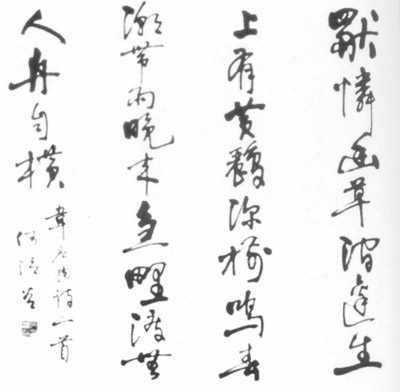 獨憐幽草澗邊生
上有黃鸝深樹鳴春
潮帶雨晚來急野渡無
人舟自橫
韋應物詩一首
何